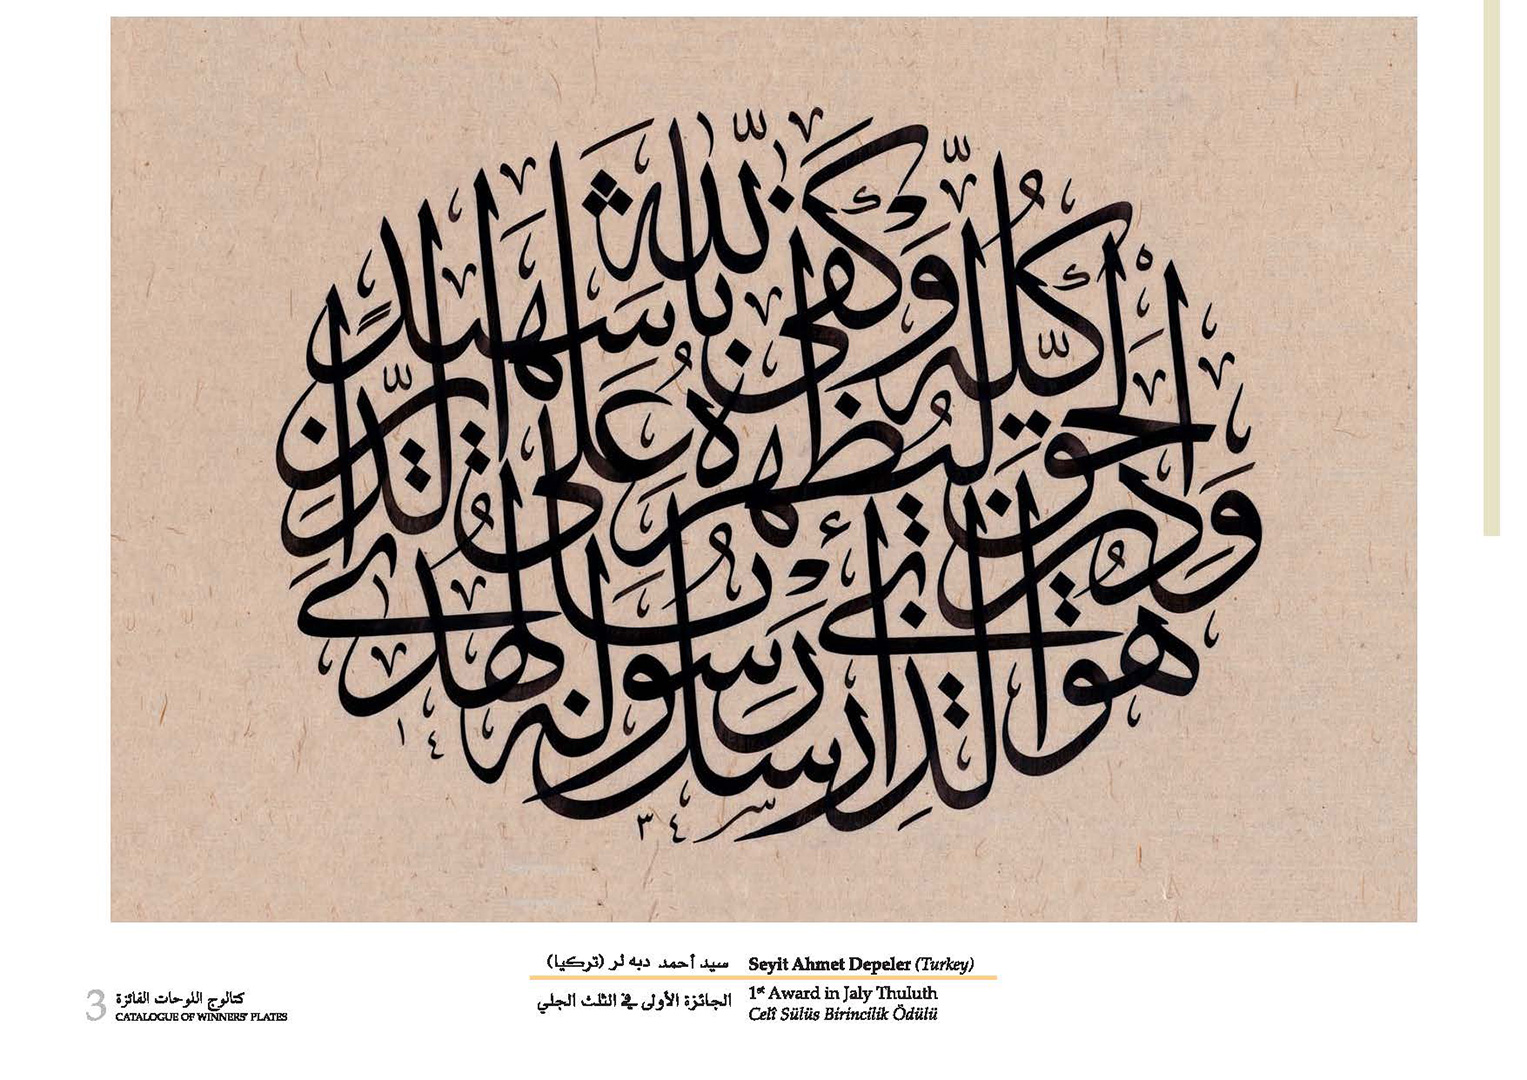 هو الذي أرسل رسوله بالهدى
ودين الحق ليظهره على الدين
كله وكفى بالله شهيدا
١٤
٣٤
سيد أحمد دبه لر (تركيا)
Seyit Ahmet Depeler (Turkey)
الجائزة الأولى في الثلث الجلي
1st Award in Jaly Thuluth
Celî Sülüs Birincilik Ödülü
3
كتالوج اللوحات الفائزة
CATALOGUE OF WINNERS' PLATES